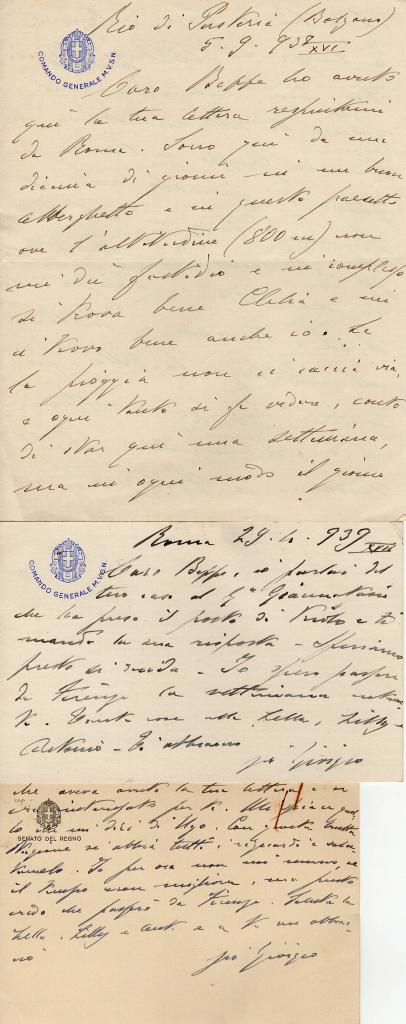 Rio di Pusteria (Bolzano)
5. 9. 938 XVI
COMANDO GENERALE M.V.S.N.
Caro Beppe ho avuto
qui la tua lettera respintami
da Roma. Sono qui da una
diecina di giorni in un buon
alberghetto e in questo paesetto
ove l'altitudine (800 m) non
mi dà fastidio e in complesso
si trova bene Clelia e mi
ci trovo bene anche io. Se
la pioggia non ci caccia via,
e ogni tanto si fa vedere, conto
di star qui una settimana,
ma in ogni modo il giorno
Roma 29. 4. 939 XVII
COMANDO GENERALE M.V.S.N.
Caro Beppe, io parlai del
tuo caso al
che ha preso il posto di e ti
mando la sua risposta - Speriamo
presto si decida - Io spero passare
da Firenze la settimana
Tante cose alla Lella, Lilly e
Antonio - Ti abbraccio
zio Giorgio
che aveva avuto la tua lettera e si
per te.
SENATO DEL REGNO
lo che mi dici di Ugo. Con questa brutta
stagione si abbia tutti riguardi e
Io per ora non mi
il tempo non migliora, ma presto
credo che passerò da Firenze. Saluta la
Lella, Lilly e Ant. e a te un abbrac-
cio
zio Giorgio